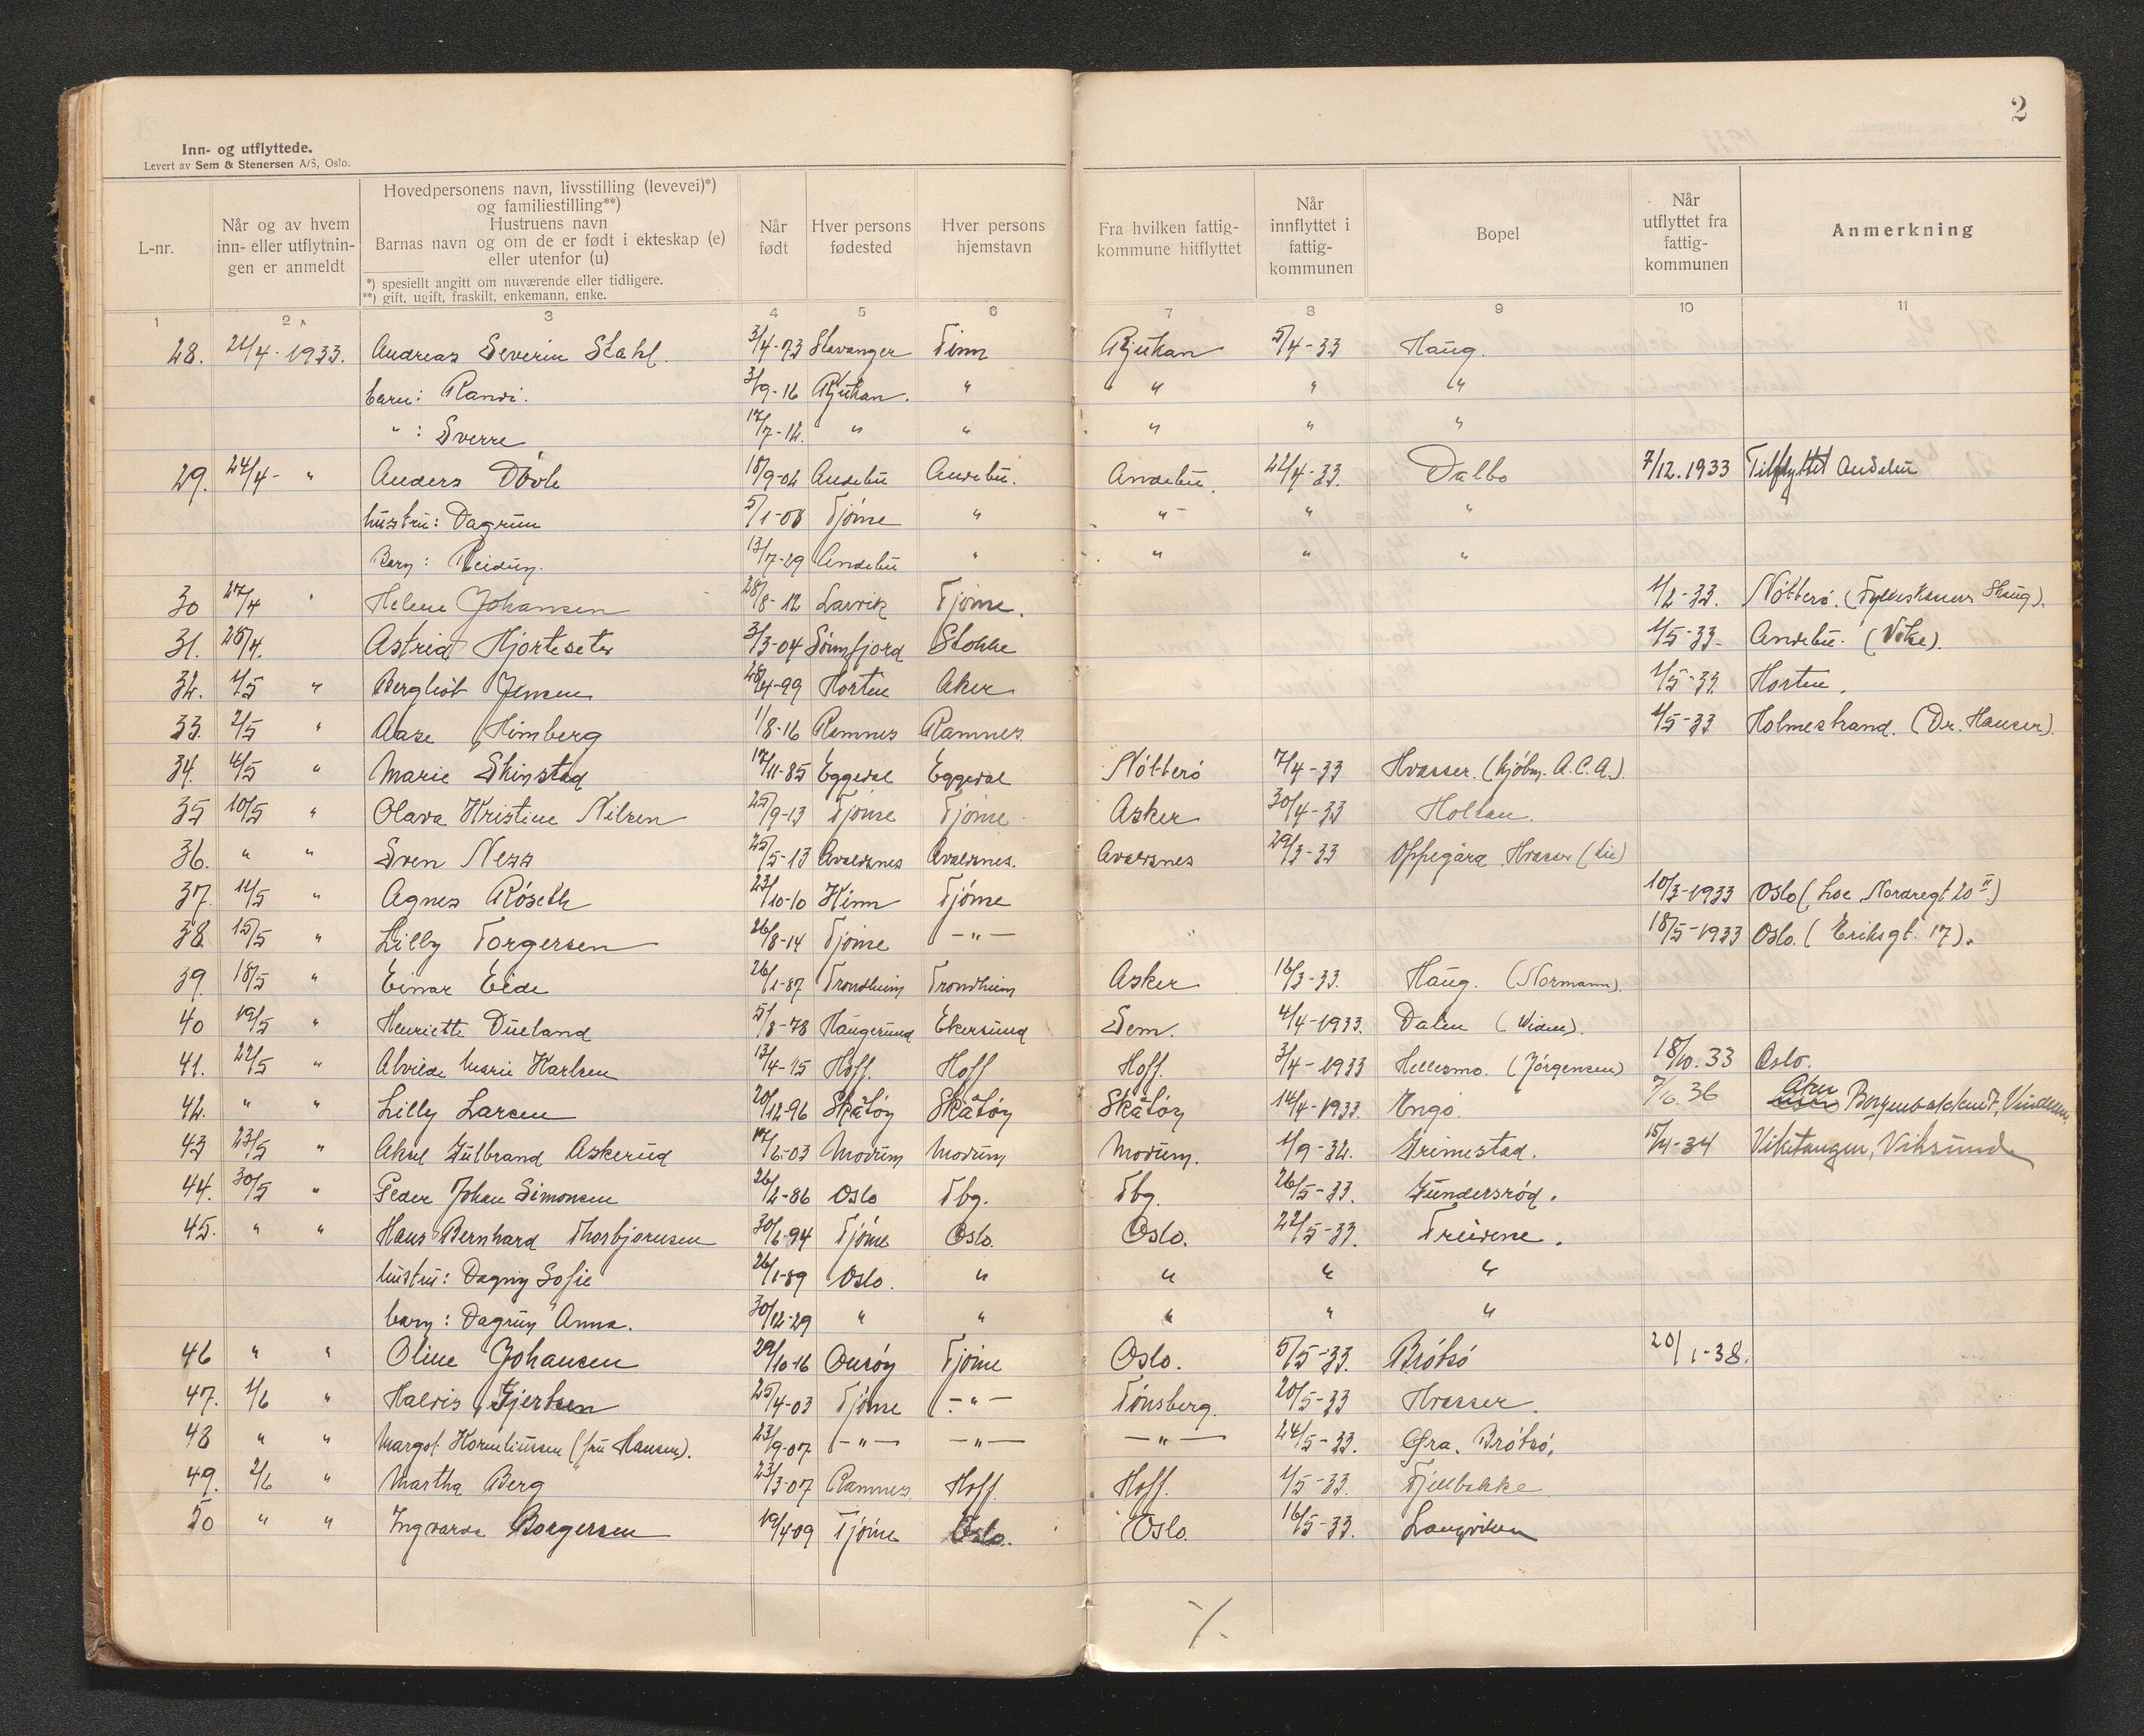 2
Inn- og utflyttede.
Levert av Sem & Stenersen A/S, Oslo.
L-nr. | Når og av hvem inn- eller utflytnin-gen er anmeldt | Hovedpersonens navn, livsstilling (levevei)*) og familiestilling**) Hustruens navn Barnas navn og om de er født i ekteskap (e) eller utenfor (u) *) spesiellt angitt om nuværende eller tidligere. **) gift, ugift, fraskilt, enkemann, enke. | Når født | Hver persons fødested | Hver persons hjemstavn | Fra hvilken fattig-kommune hitflyttet | Når innflyttet i fattig-kommunen | Bopel | Når utflyttet fra fattig-kommunen | Anmerkning
1 2 3 4 5 6 7 8 9 10 11
28. 21/4-1933. Andreas Severin Stahl. 3/4-73 Stavanger Tinn Rjukan 5/4-33 Haug.
barn: Randi. 3/9-16 Rjukan. " " " "
" : Sverre 17/7-12. " " " " "
29. 24/4- " Anders Døvle 18/9-02 Andebu Andebu. Andebu. 22/4-33. Dalbo 7/12.1933 Tilflyttet Andebu
hustru: Dagrun 5/1-08 Tjøme " " " "
Barn: Reidun. 13/7-29 Andebu " " " "
30 27/4 " Helene Johansen 28/8-12 Larvik Tjøme. 1/2-33. Nøtterö. (Fylkeskasserer Skaug).
31. 28/4. Astrid Hjorteseter 3/3-04 Sönnfjord Stokke 1/5-33- Andebu. (Vike).
32. 1/5 " Bergliot Jensen 28/4-99 Horten Aker 1/5-33 Horten.
33. 2/5 " Aase Himberg 1/8-16 Ramnes Ramnes. 1/5-33 Holmestrand. (Dr. Hanser).
34. 4/5 " Marie Skinstad 17/11-85 Eggedal Eggedal Nøtterö 7/4-33 Hvasser. (kjöbm. A.C.A.).
35 10/5 " Olava Kristine Nilsen 25/9-13 Tjöme Tjöme Asker 30/4-33 Holtan.
36. " " Sven Ness 25/5-13 Avaldsnes Avaldsnes. Avaldsnes 29/3-33 Oppegård Hvasser (Lie)
37. 12/5 " Agnes Røseth 23/10-10 Kinn Tjöme 10/3-1933 Oslo (hos Nordregt 20 II)
38. 15/5 " Lilly Torgersen 26/8-14 Tjöme -"- 18/5-1933 Oslo. (Eriksgt. 17).
39. 18/5 " Einar Eide 26/1-87 Trondheim Trondheim Asker 16/3-33. Haug. (Normann).
40 19/5 " Henriette Dueland 5/8-78 Haugesund Ekersund Sem. 4/4-1933. Dalen (Widen).
41. 22/5 " Alvilde Marie Karlsen 13/4-15 Hoff. Hoff Hoff. 3/4-1933 Hellesmo. (Jörgensen) 18/10.33 Oslo.
42. " " Lilly Larsen 20/12-96 Skåtöy Skåtöy Skåtöy 14/4-1933. Engö. 36 Aker
43 23/5 " Aksel Gulbrand Askerud 17/6-03 Modum Modum Modum. 1/9-32. Grimestad. 15/4-34 Viketangen, Viksund
44. 30/5 " Peder Johan Simonsen 26/2-86 Oslo Tbg. Tbg. 26/5-33. Gundersröd.
45. " " Hans Bernhard Thorbjørnsen 30/6-94 Tjöme Oslo. Oslo. 22/5-33.
hustru: Dagny Sofie 26/1-89 Oslo. " " " "
barn: Dagrun Anna. 30/12-29 " " " " "
46 " " Oline Johansen 29/10-16 Onsöy Tjöme Oslo. 5/5-33. Bröttsö 20/1-38.
47. 1/6 " Haldis Gjertsen 25/4-03 Tjöme -"- Tönsberg. 20/5-33 Hvasser.
48 " " Margot Korneliussen (fru Hansen). 23/9-07 -"- -"- -"- 24/5-33. Øra. Bröttsö.
49. 2/6 " Martha Berg 23/3-07 Ramnes Hoff. Hoff. 1/5-33. Fjellbakke
50 " " Ingvarda Borgersen 19/4-09 Tjöme Oslo. Oslo. 16/5-33. Langviken